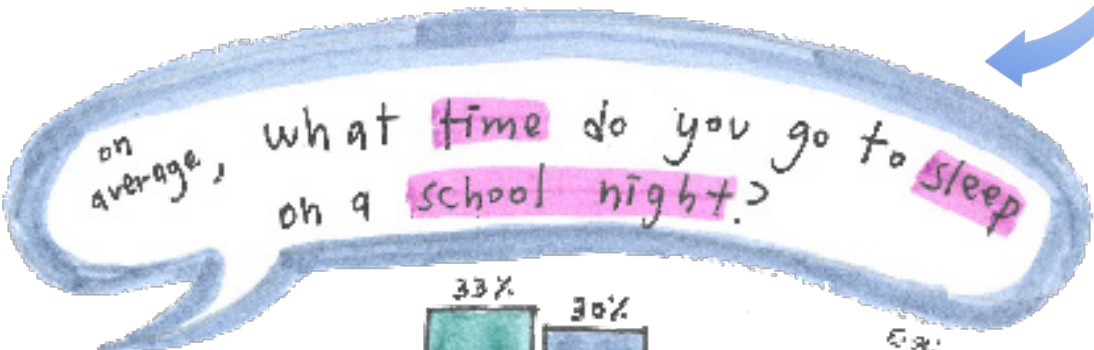 on average, what time do you go to sleep
on a school night?
33% 30%